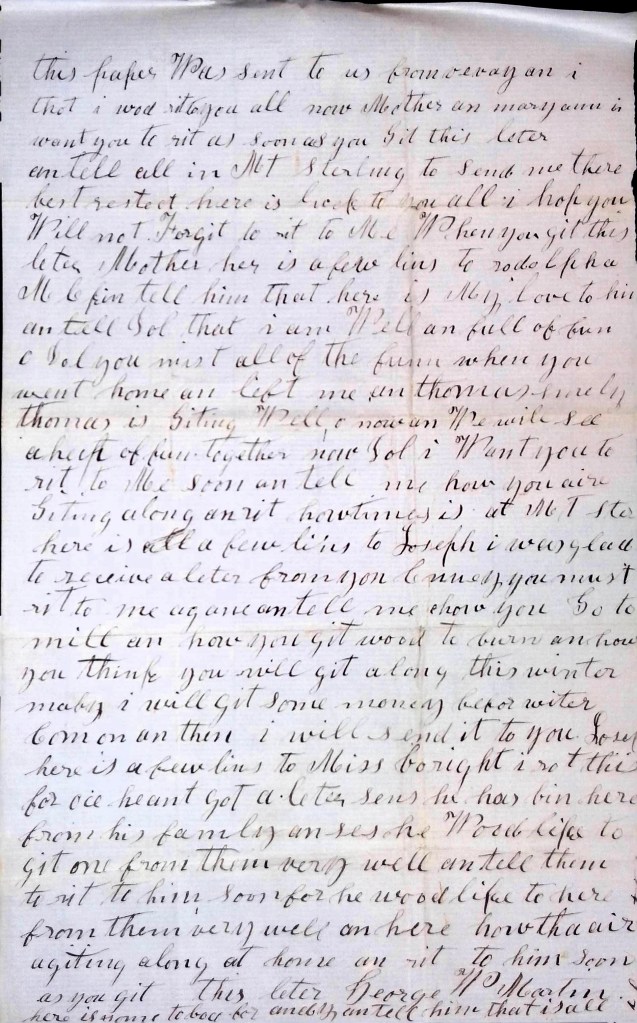 this paper Was sent to us from vevay an i
that i wod rit to you all now Mother an mary ann is
want you to rit as soon as you Git this leter
an tell all in MT sterling to send me there
best respect here is luck to you all i hop you
Will not Forgit to rit to Me When you git this
leter Mother her is a few lins to rodolpha
tell him that here is My love to him
an tell Sol that i am Well an full of fun
o Sol you mist all of the funn when you
went home an left me an thomas
thomas is Giting Well now an We will see
a heap of fun together now Sol i Want you to
rit to Me soon an tell me how you aire
Giting along an rit how times is at MT Ster
here is all a few lins to Joseph i was glad
to receive a leter from you you must
rit to me agane an tell me how you Go to
mill an how you git wood to burn an how
you think you will git along this winter
maby i will git some money befor witer
Com on an then i will send it to you Josep
here is a few lins to Miss Boright i rot this
for he heant got a leter sens he has bin here
from his family an ses he Wood like to
git one from them very well an tell them
to rit to him soon for he wood like to here
from them very well an here how tha air
agiting along at home an rit to him soon
as you git this leter George W Martin
here is none to bad for andy an tell him that is all